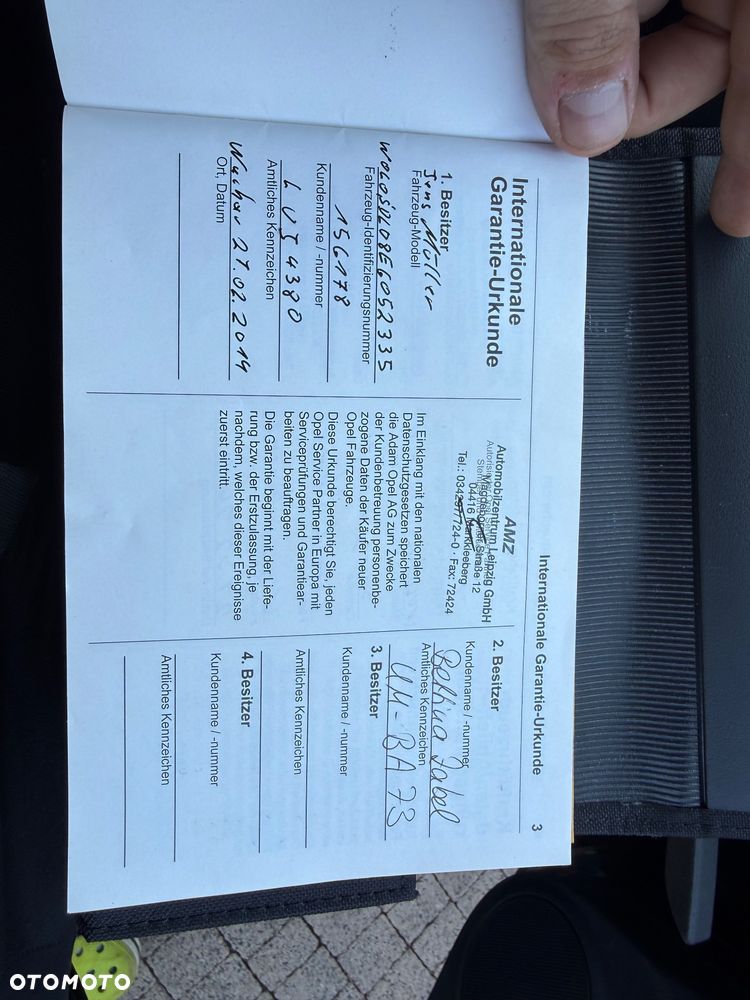 Internationale Garantie-Urkunde
3
Internationale
Garantie-Urkunde
1. Besitzer
Jens Müller
Fahrzeug-Modell
Fahrzeug-Identifizierungsnummer
156178
Kundenname / -nummer
Amtliches Kennzeichen
27.02.2014
Ort, Datum
AMZ
Automobilzentrum Leipzig GmbH
Straße 12
04416 Markkleeberg
Tel.: 7724-0 · Fax: 72424
Im Einklang mit den nationalen
Datenschutzgesetzen speichert
die Adam Opel AG zum Zwecke
der Kundenbetreuung personenbe-
zogene Daten der Käufer neuer
Opel Fahrzeuge.
Diese Urkunde berechtigt Sie, jeden
Opel Service Partner in Europa mit
Serviceprüfungen und Garantiear-
beiten zu beauftragen.
Die Garantie beginnt mit der Liefe-
rung bzw. der Erstzulassung, je
nachdem, welches dieser Ereignisse
zuerst eintritt.
2. Besitzer
Kundenname / -nummer
Bettina Zabel
Amtliches Kennzeichen
UM-BA 73
3. Besitzer
Kundenname / -nummer
Amtliches Kennzeichen
4. Besitzer
Kundenname / -nummer
Amtliches Kennzeichen
OTOMOTO